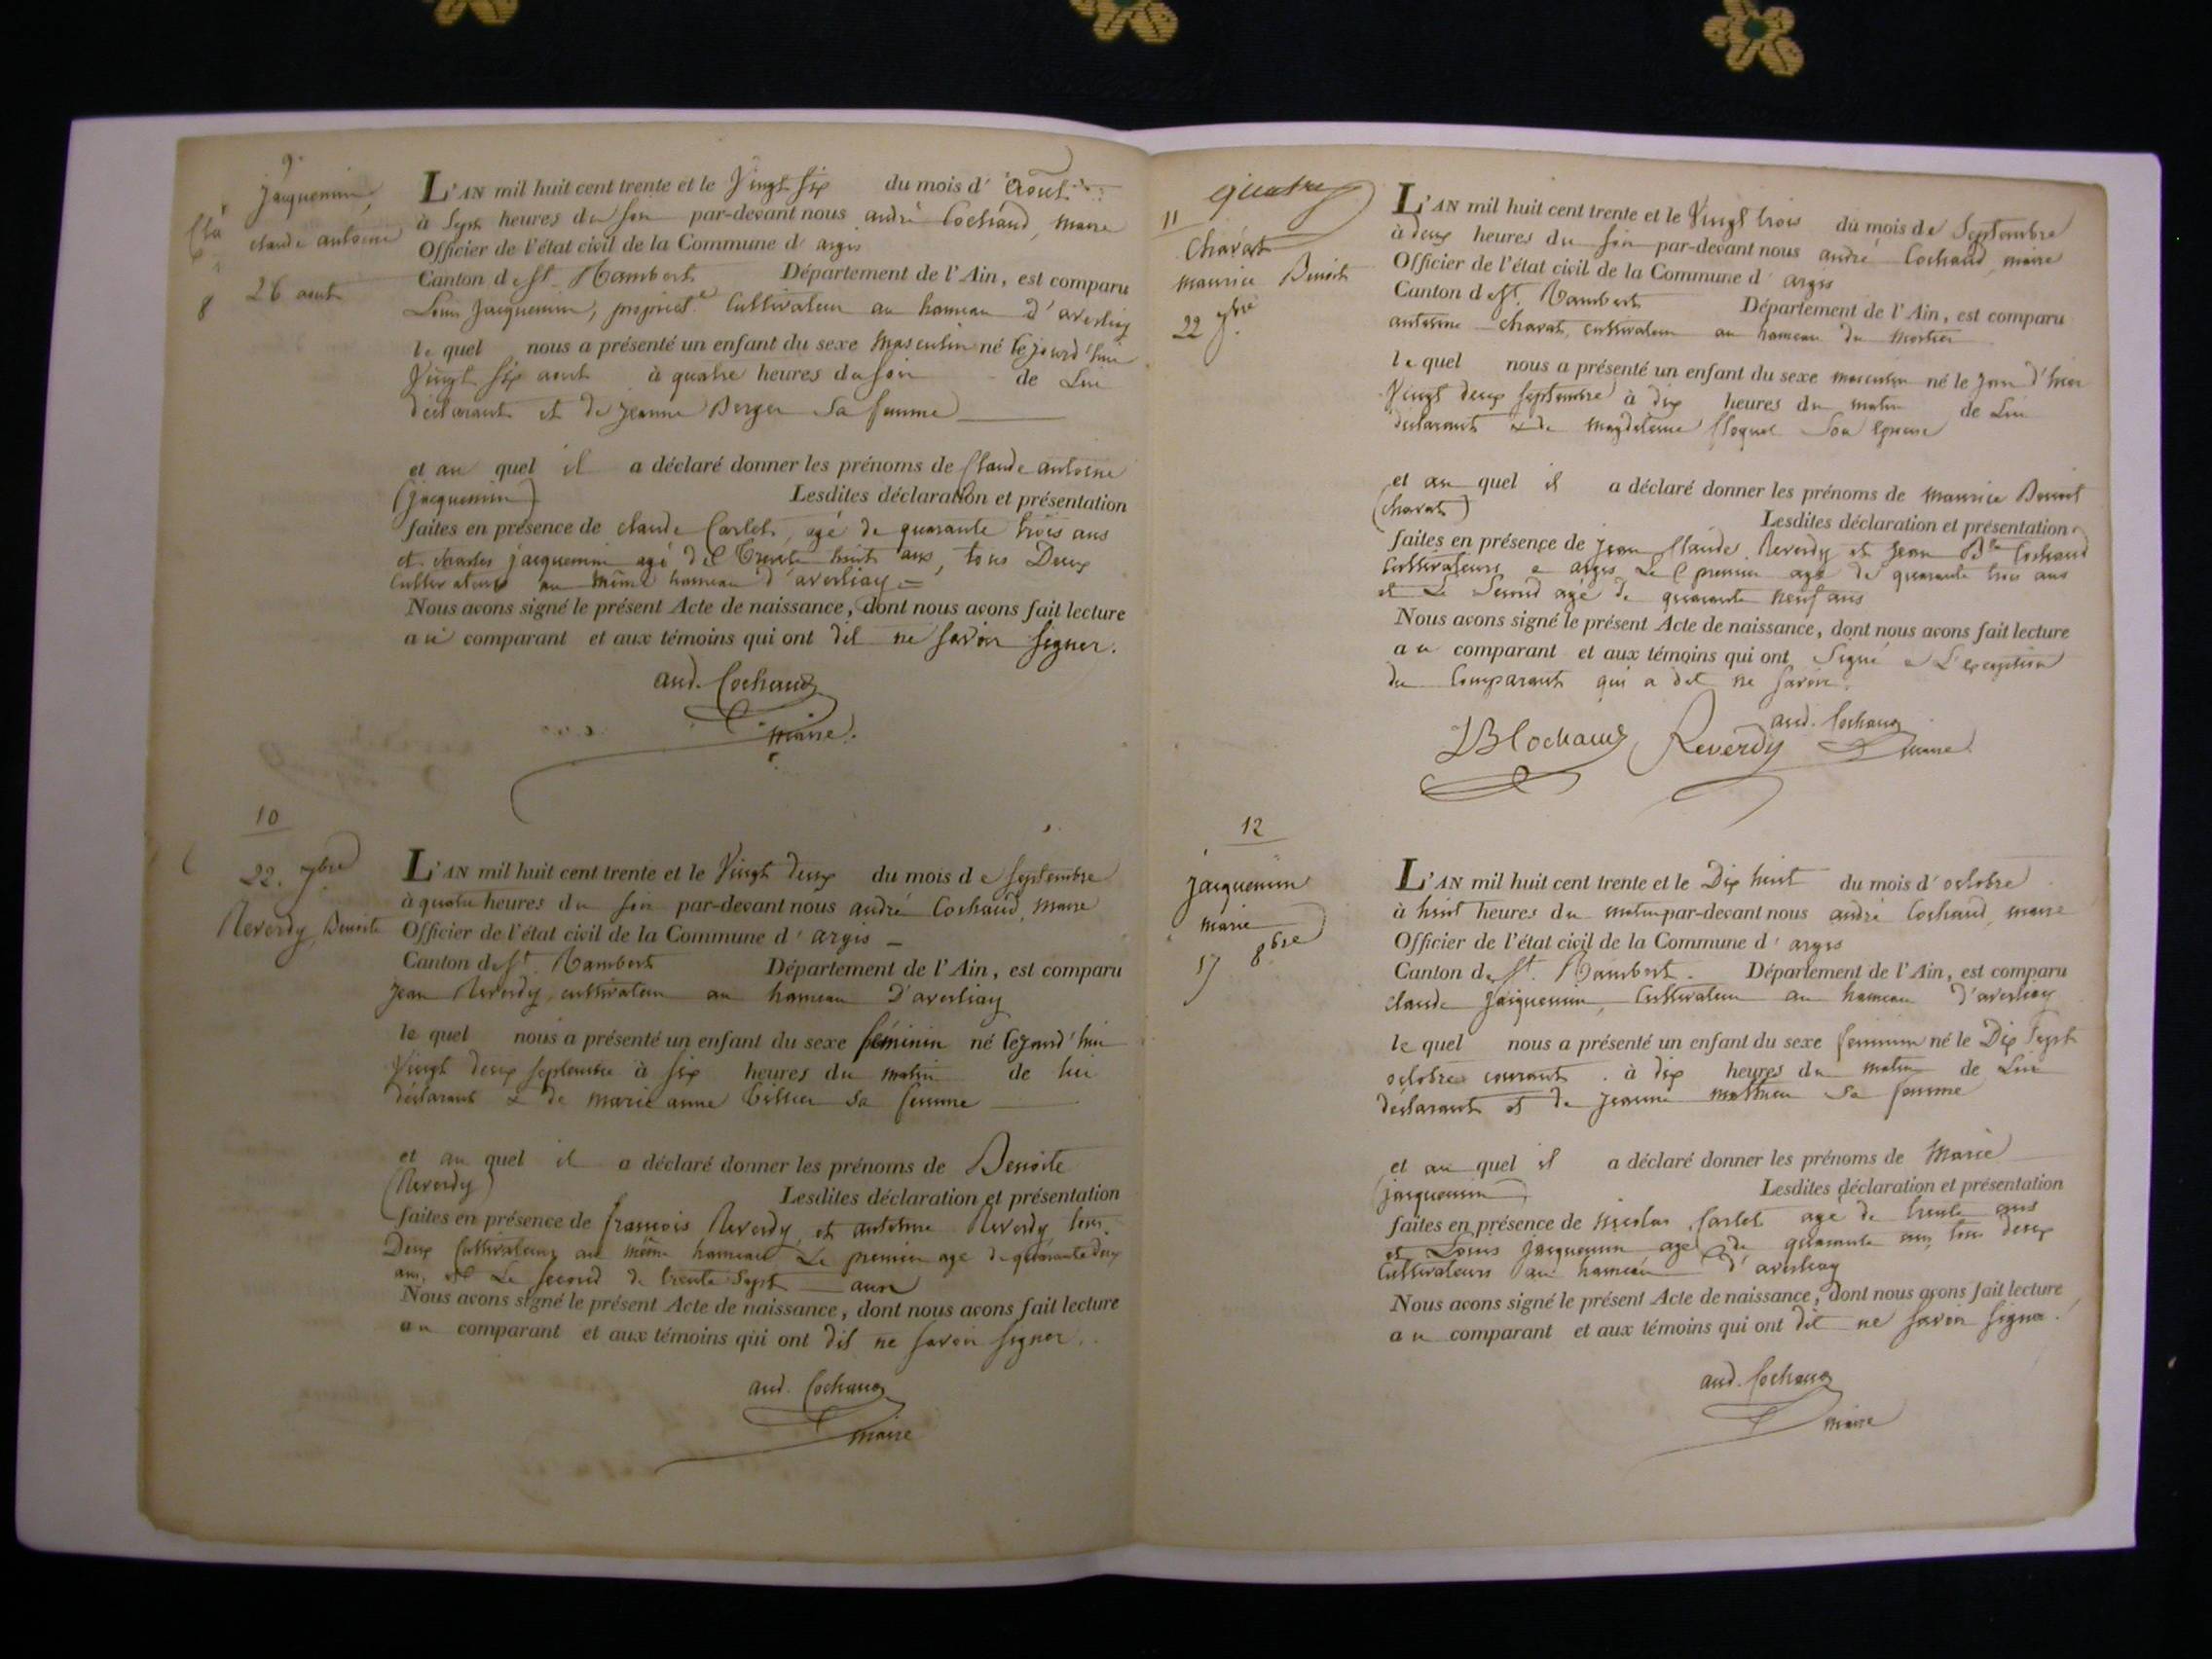 9.
Jacquemin
claude antoine
26 aout
8
L'AN mil huit cent trente et le Vingt six du mois d' Aout
à Sept heures du soir par-devant nous andré Cochaud, maire
Officier de l'état civil de la Commune d' argis
Canton de St. Rambert Département de l'Ain, est comparu
Louis Jacquemin, propriét.e Cultivateur au hameau d'averliay
le quel nous a présenté un enfant du sexe masculin né lejourd'hui
Vingt six aout à quatre heures du soir de Lui
déclarant et de jeanne Berger sa femme
et au quel il a déclaré donner les prénoms de Claude antoine
(jacquemin) Lesdites déclaration et présentation
faites en présence de claude Carlet, agé de quarante trois ans
et charles jacquemin agé de trente huit ans, tous Deux
Cultivateurs au même hameau d'averliay
Nous avons signé le présent Acte de naissance, dont nous avons fait lecture
au comparant et aux témoins qui ont dit ne savoir signer.
and. Cochaud
maire.
10
22. 7bre
Reverdy, Benoite
L'AN mil huit cent trente et le Vingt deux du mois de septembre
à quatre heures du soir par-devant nous andré Cochaud, maire
Officier de l'état civil de la Commune d' argis
Canton de St. Rambert Département de l'Ain, est comparu
Jean Reverdy, cultivateur au hameau D'averliay
le quel nous a présenté un enfant du sexe féminin né lejourd'hui
Vingt deux septembre à six heures du matin de lui
déclarant & de marie anne sa femme
et au quel il a déclaré donner les prénoms de Benoite
(Reverdy) Lesdites déclaration et présentation
faites en présence de francois Reverdy, et antoine Reverdy tous
Deux Cultivateurs au même hameau Le premier agé de quarante deux
ans, et Le second de trente sept ans
Nous avons signé le présent Acte de naissance, dont nous avons fait lecture
au comparant et aux témoins qui ont dit ne savoir signer.
and. Cochaud
maire
quatre
11
Charat
maurice Benoit
22 7bre
L'AN mil huit cent trente et le Vingt trois du mois de Septembre
à deux heures du soir par-devant nous andré Cochaud maire
Officier de l'état civil de la Commune d' argis
Canton de St. Rambert Département de l'Ain, est comparu
antoine charat, cultivateur au hameau du mortier
le quel nous a présenté un enfant du sexe masculin né le jour d'hier
Vingt deux septembre à dix heures du matin de Lui
déclarant & de magdelaine son epouse
et au quel il a déclaré donner les prénoms de maurice Benoit
(charat) Lesdites déclaration et présentation
faites en présence de jean Claude Reverdy et jean Bte Cochaud
Cultivateurs a argis Le premier agé de quarante trois ans
et Le Second agé de quarante neuf ans
Nous avons signé le présent Acte de naissance, dont nous avons fait lecture
au comparant et aux témoins qui ont Signé a L'exception
du Comparant qui a dit ne savoir.
JB Cochaud Reverdy and. Cochaud
maire.
12
jacquemin
marie
17 8bre
L'AN mil huit cent trente et le Dix huit du mois d' octobre
à huit heures du matin par-devant nous andré Cochaud, maire
Officier de l'état civil de la Commune d' argis
Canton de St. Rambert. Département de l'Ain, est comparu
claude jacquemin, Cultivateur au hameau d'averliay
le quel nous a présenté un enfant du sexe feminin né le Dix Sept
octobre courant à dix heures du matin de Lui
déclarant et de jeanne mathieu sa femme
et au quel il a déclaré donner les prénoms de Marie
(jacquemin) Lesdites déclaration et présentation
faites en présence de nicolas Carlet agé de trente ans
et Louis jacquemin agé de quarante ans tous deux
Cultivateurs au hameau d'averliay
Nous avons signé le présent Acte de naissance, dont nous avons fait lecture
au comparant et aux témoins qui ont dit ne savoir signer.
and. Cochaud
maire